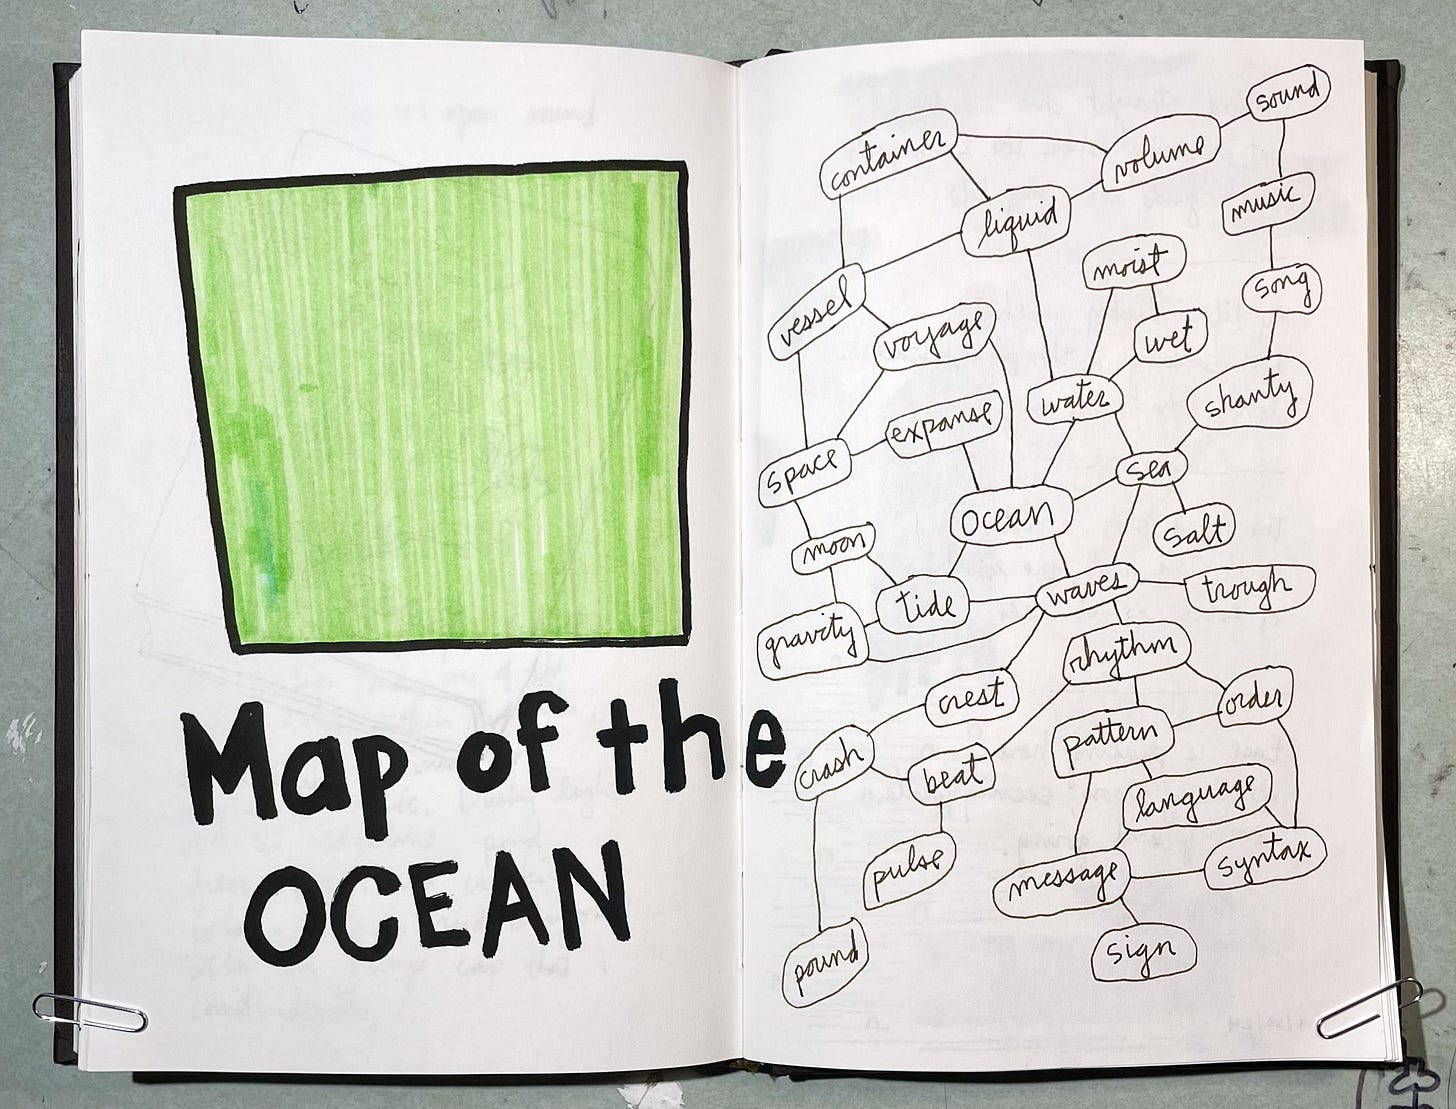 Map of the
OCEAN
sound
container
volume
music
liquid
moist
song
vessel
voyage
wet
water
shanty
expanse
space
sea
ocean
salt
moon
waves
trough
tide
gravity
rhythm
crest
order
pattern
crash
beat
language
pulse
syntax
message
pound
sign